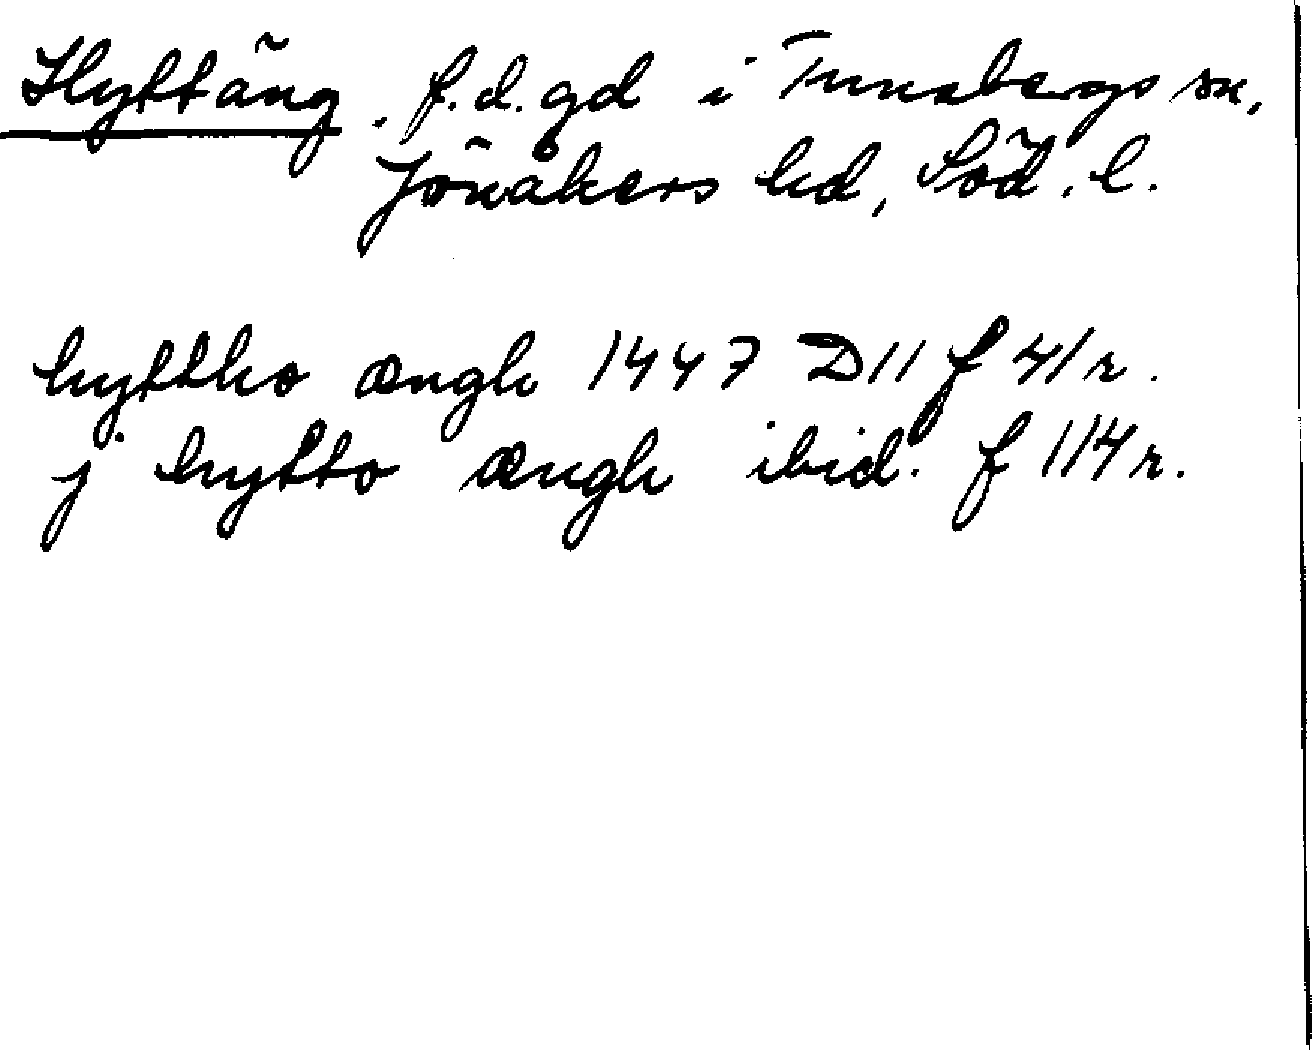 Hyttäng, f.d. gd i Tunabergs sn,
Jönåkers hd, Söd. l.
hyttho ængh 1447 D11 f 41r.
j hytto ængh ibid. f 114r.